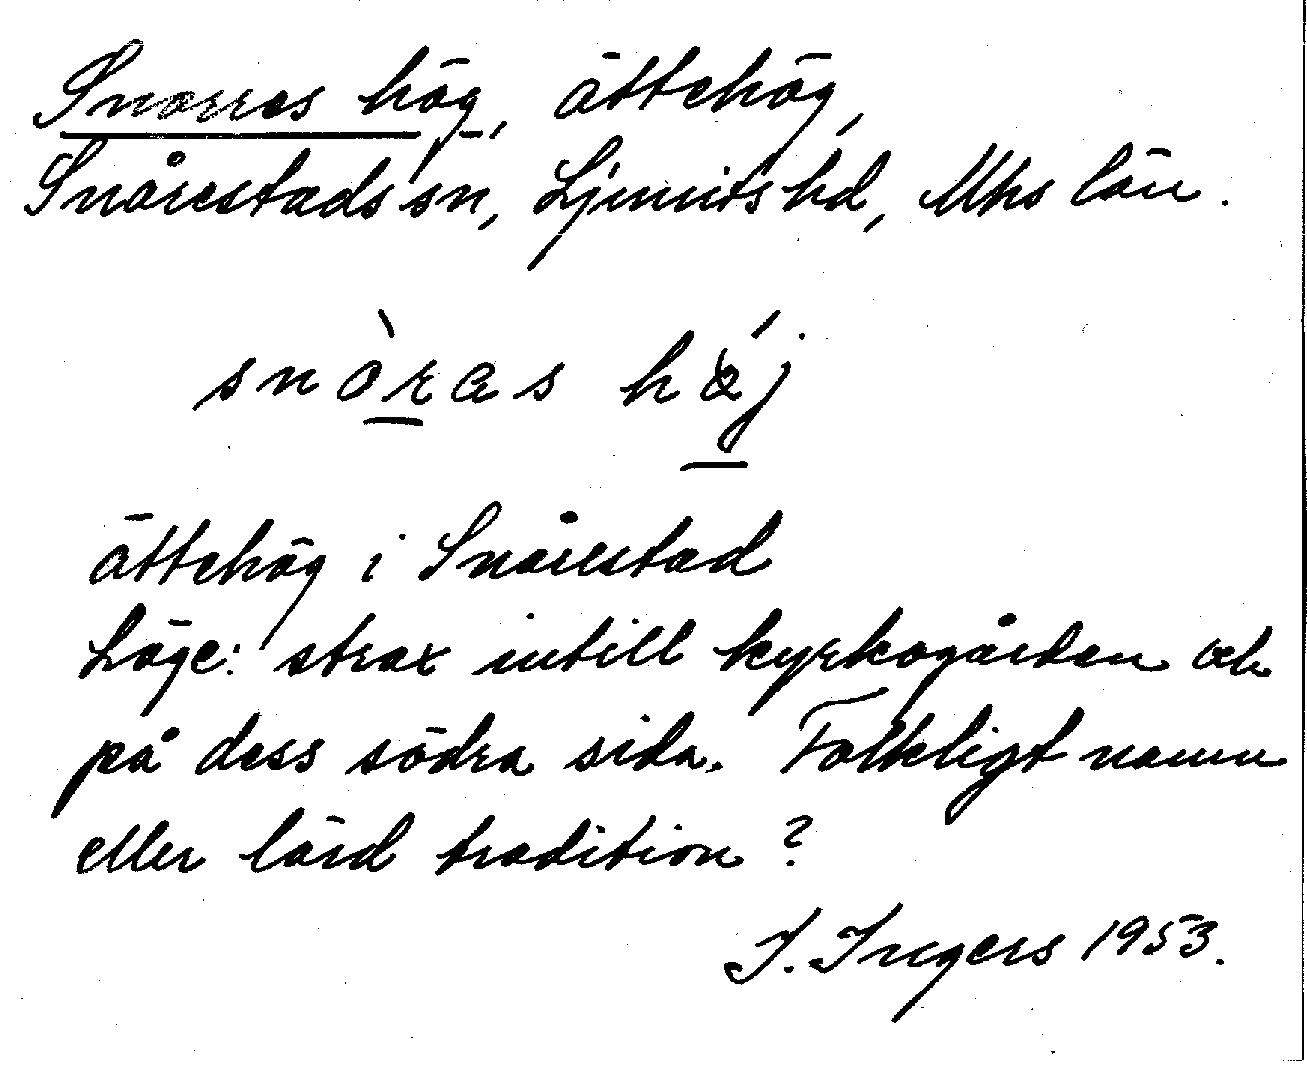 Snorres hög, ättehög,
Snårestads sn, Ljunits hd, Mhs län.
snòras høj
ättehög i Snårestad
Läge: strax intill kyrkogården och
på dess södra sida. Folkligt namn
eller lärd tradition?
I. Ingers 1953.